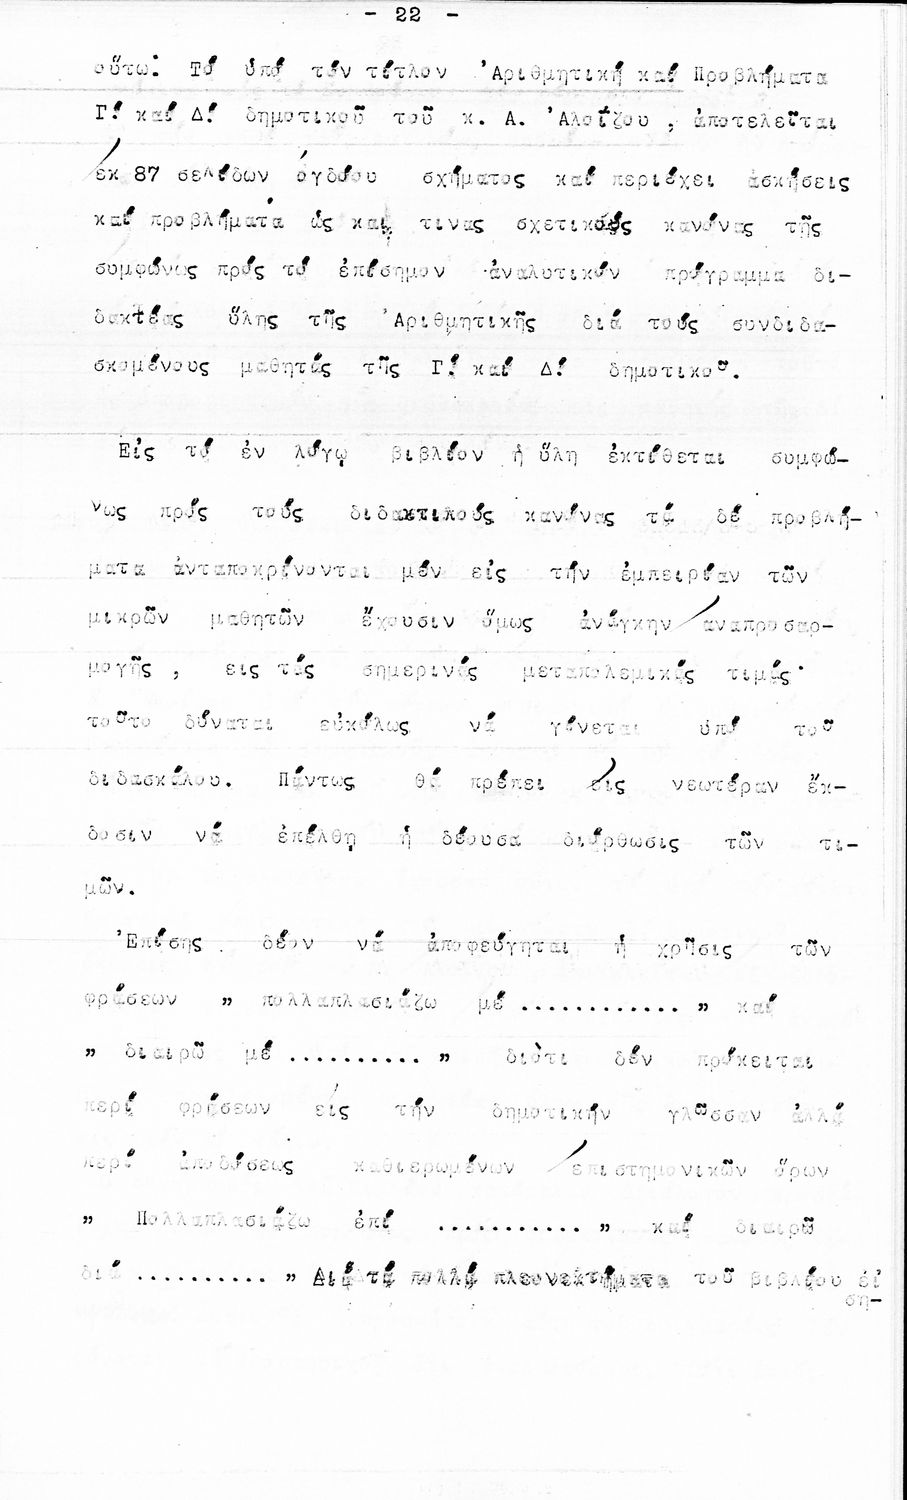 - 22 -
οὕτω: Τό ὑπό τόν τίτλον Ἀριθμητική καί Προβλήματα
Γ! καί Δ! δημοτικοῦ τοῦ κ. Α. Ἀλοΐζου , ἀποτελεῖται
ἐκ 87 σελίδων ὀγδόου σχήματος καί περιέχει ἀσκήσεις
καί προβλήματα ὡς καί τινας σχετικούς κανόνας τῆς
συμφώνως πρός τό ἐπίσημον ἀναλυτικόν πρόγραμμα δι-
δακτέας ὕλης τῆς Ἀριθμητικῆς διά τούς συνδιδα-
σκομένους μαθητάς τῆς Γ! καί Δ! δημοτικοῦ.
Εἰς τό ἐν λόγῳ βιβλίον ἡ ὕλη ἐκτίθεται συμφώ-
νως πρός τούς διδακτικούς κανόνας τά δέ προβλή-
ματα ἀνταποκρίνονται μέν εἰς τήν ἐμπειρίαν τῶν
μικρῶν μαθητῶν ἔχουσιν ὅμως ἀνάγκην ἀναπροσαρ-
μογῆς , εις τάς σημερινάς μεταπολεμικάς τιμάς·
τοῦτο δύναται εὐκόλως νά γίνεται ὑπό τοῦ
διδασκάλου. Πάντως θά πρέπει εἰς νεωτέραν ἔκ-
δοσιν νά ἐπέλθῃ ἡ δέουσα διόρθωσις τῶν τι-
μῶν.
Ἐπίσης δέον νά ἀποφεύγηται ἡ χρῆσις τῶν
φράσεων " πολλαπλασιάζω μέ ............ " καί
" διαιρῶ μέ .......... " διότι δέν πρόκειται
περί φράσεων εἰς τήν δημοτικήν γλῶσσαν ἀλλά
περί ἀποδόσεως καθιερωμένων ἐπιστημονικῶν ὅρων
" Πολλαπλασιάζω ἐπί ........... " καί διαιρῶ
διά .......... " Διά τά πολλά πλεονεκτήματα τοῦ βιβλίου εἰ
ση-